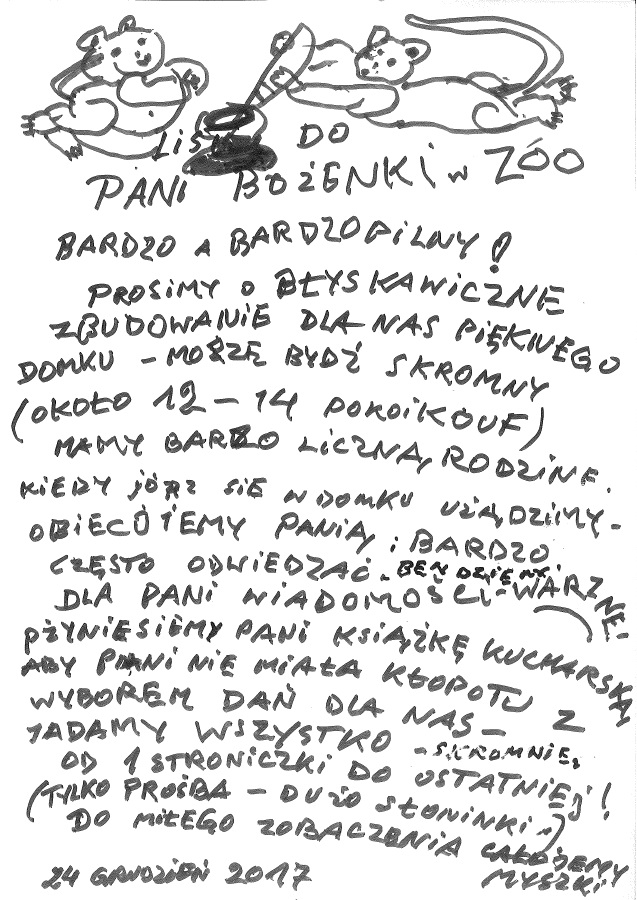 LIST DO
PANI BOŻENKI W ZÓO
BARDZO A BARDZO PILNY!
PROSIMY O BŁYSKAWICZNE
ZBUDOWANIE DLA NAS PIĘKNEGO
DOMKU - MOŻĘ BYDŹ SKROMNY
(OKOŁO 12 - 14 POKOIKOUF)
MAMY BARZO LICZNĄ RODZINE.
KIEDY JÓRZ SIE W DOMKU UŻĄDZIMY -
OBIECÓJEMY PANIĄ I BARDZO
CZĘSTO ODWIEDZAĆ. BEŃDZIEMY
DLA PANI WIADOMOŚCI - WARZNE -
PŻYNIESIEMY PANI KSIĄŻKĘ KUCHARSKĄ
ABY PANI NIE MIAŁA KŁOPOTU Z
WYBOREM DAŃ DLA NAS -
JADAMY WSZYSTKO - SKROMNIE,
OD 1 STRONICZKI DO OSTATNIEJ!
(TYLKO PROŚBA - DUŻO SŁONINKI.)
DO MIŁEGO ZOBACZENIA CAŁÓJEMY
MYSZKI
24 GRUDZIEŃ 2017